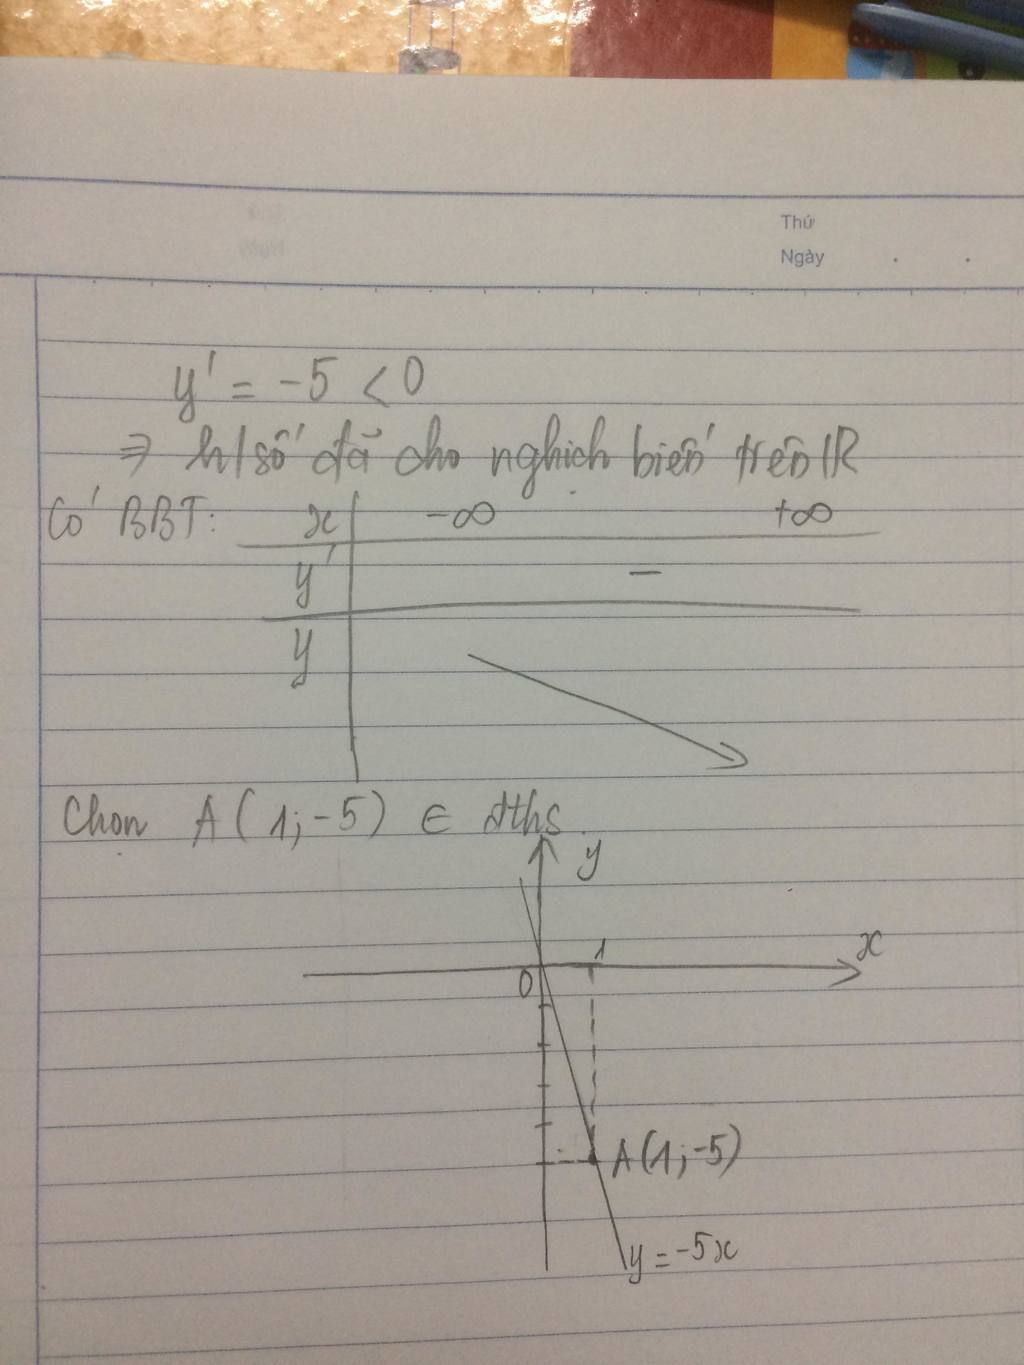 Thứ
Ngày . .
y' = -5 < 0
⇒ h/số đã cho nghịch biến trên IR
Có BBT:
x -∞ +∞
y' −
y
Chọn A(1;-5) ∈ đths.
y
1
x
0
A(1;-5)
y = -5x